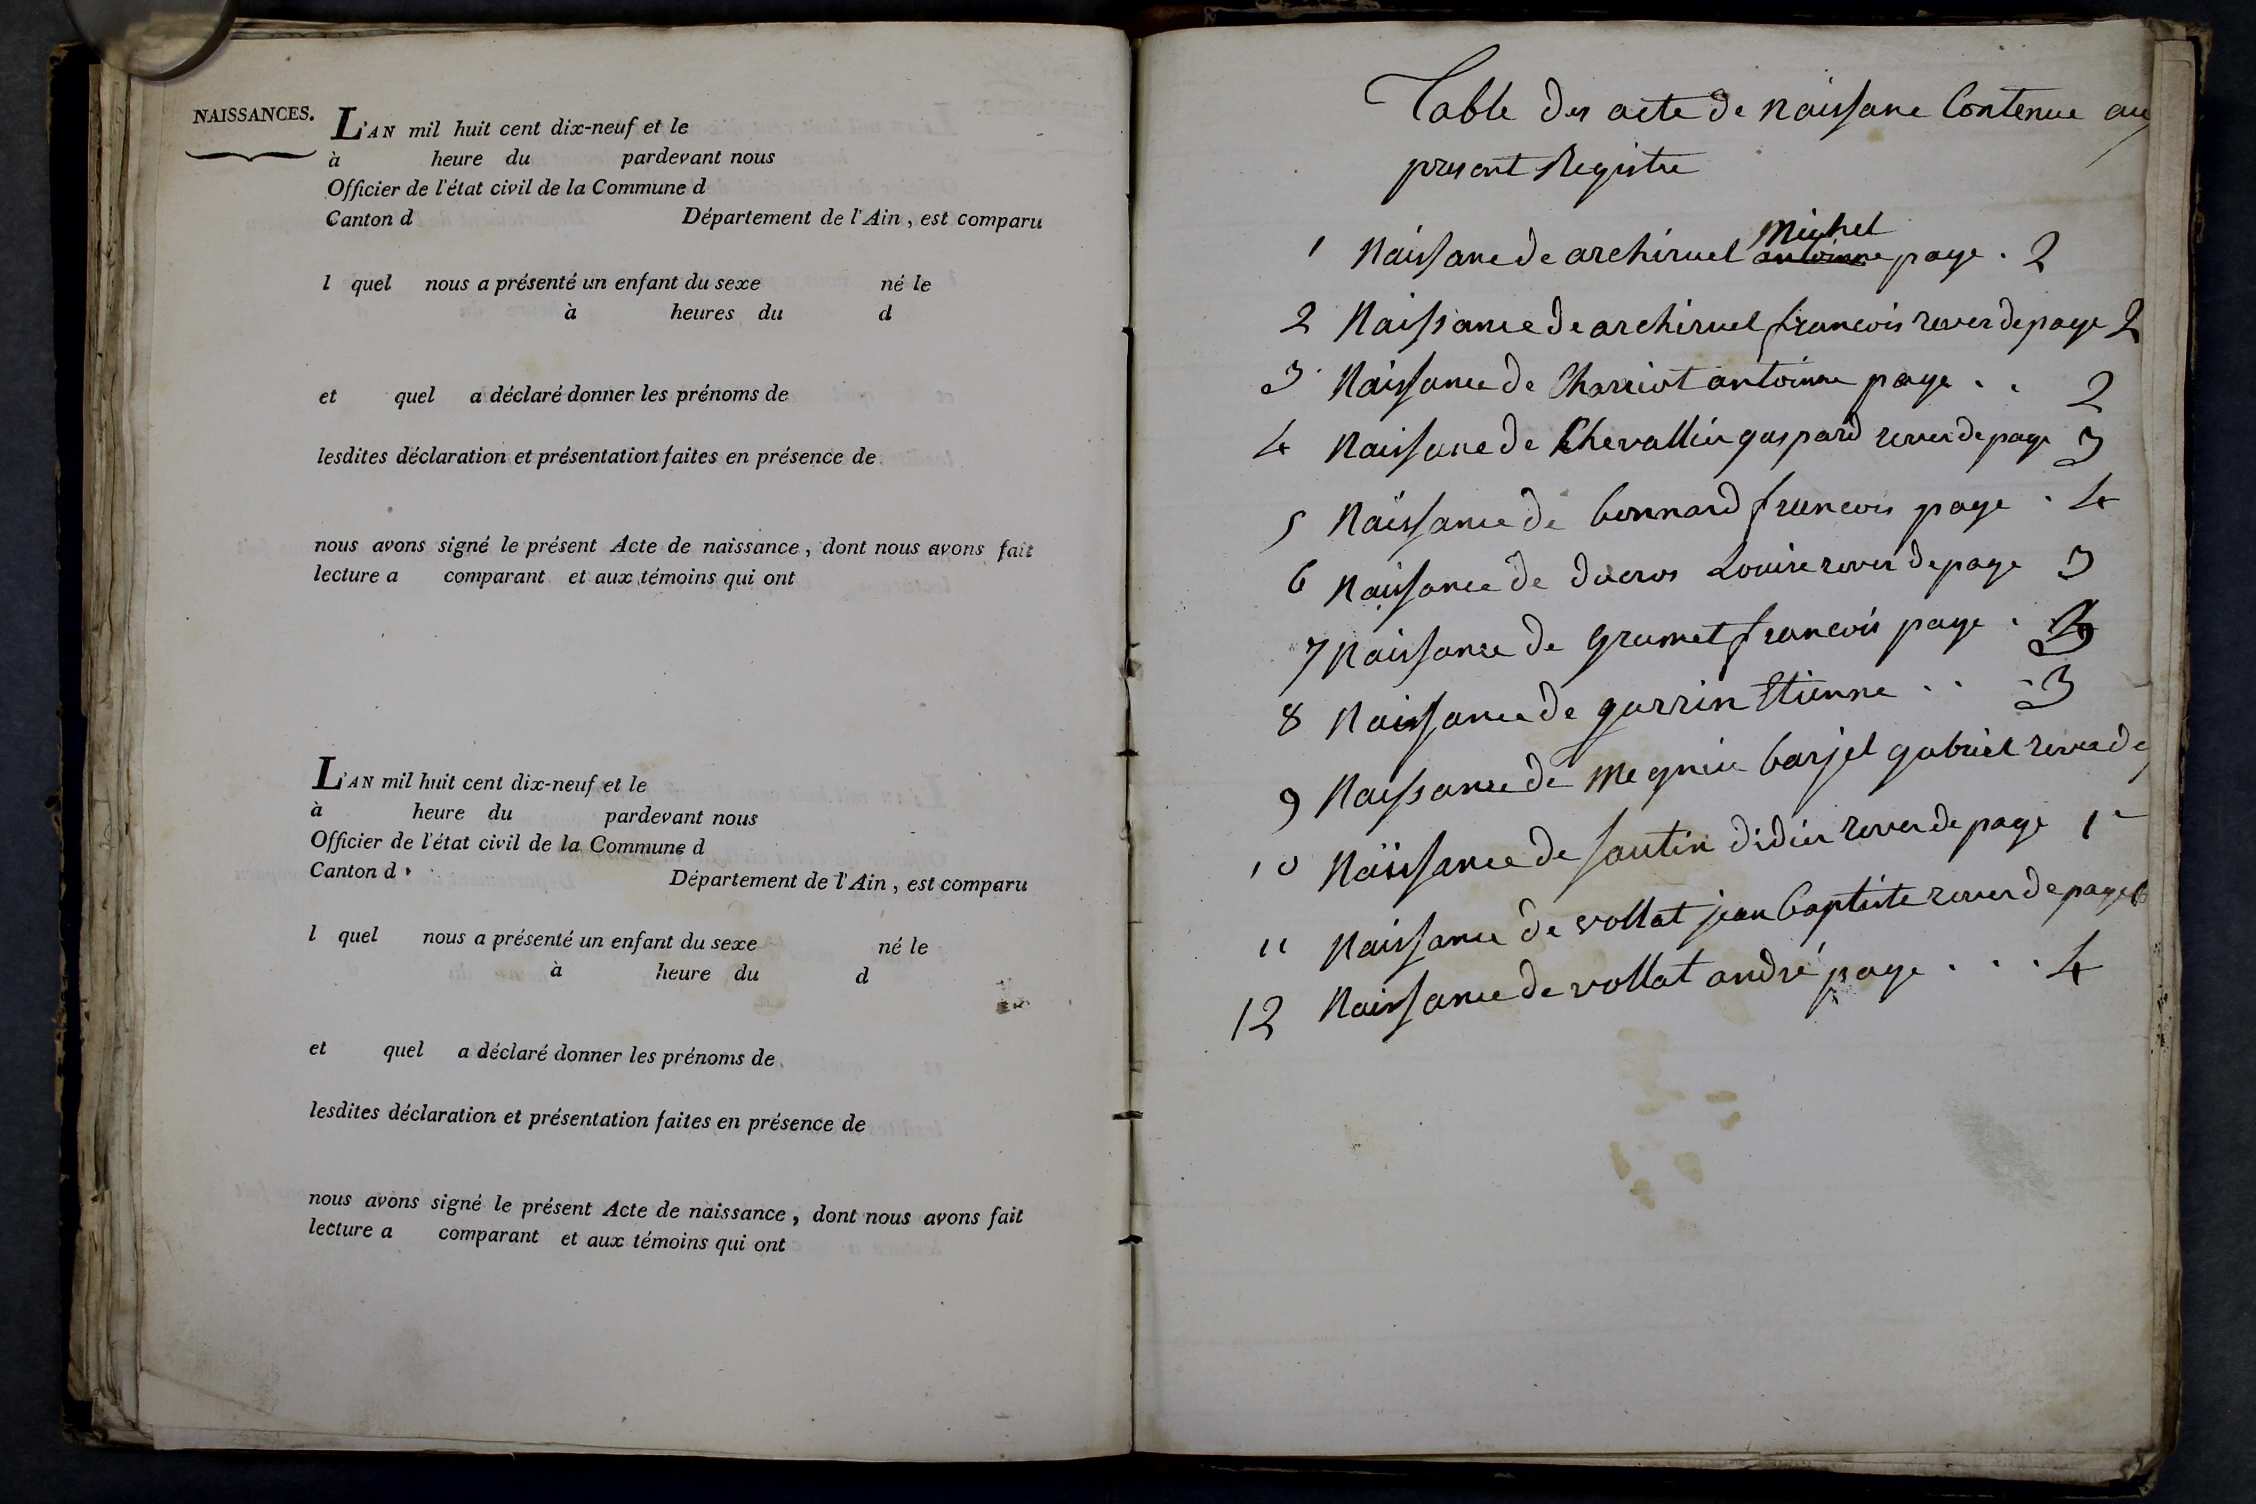 NAISSANCES.
L'AN mil huit cent dix-neuf et le
à heure du pardevant nous
Officier de l'état civil de la Commune d
Canton d Département de l'Ain, est comparu
l quel nous a présenté un enfant du sexe né le
à heures du d
et quel a déclaré donner les prénoms de
lesdites déclaration et présentation faites en présence de
nous avons signé le présent Acte de naissance, dont nous avons fait
lecture a comparant et aux témoins qui ont
L'AN mil huit cent dix-neuf et le
à heure du pardevant nous
Officier de l'état civil de la Commune d
Canton d Département de l'Ain, est comparu
l quel nous a présenté un enfant du sexe né le
à heure du d
et quel a déclaré donner les prénoms de
lesdites déclaration et présentation faites en présence de
nous avons signé le présent Acte de naissance, dont nous avons fait
lecture a comparant et aux témoins qui ont
Table des acte de naissane Contenue au
present Registre
Michel
1 Naissane de archiruel antoinne page . 2
2 Naissance de archiruel francois rever de page 2
3 Naissance de Charriot antoinne page . . 2
4 Naissane de Chevallier gaspard rever de page 3
5 Naissance de bonnard francois page . 4
6 Naissance de ducros Louise rever de page 3
7 Naissance de gramet francois page .
8 Naissance de garrin Etienne . . . 3
9 Naissance de Megnin barjel gabriel rever de
10 Naissance de santin didier rever de page 1
11 Naissance de vollat jean baptiste rever de page
12 Naissance de vollat andré page . . . 4